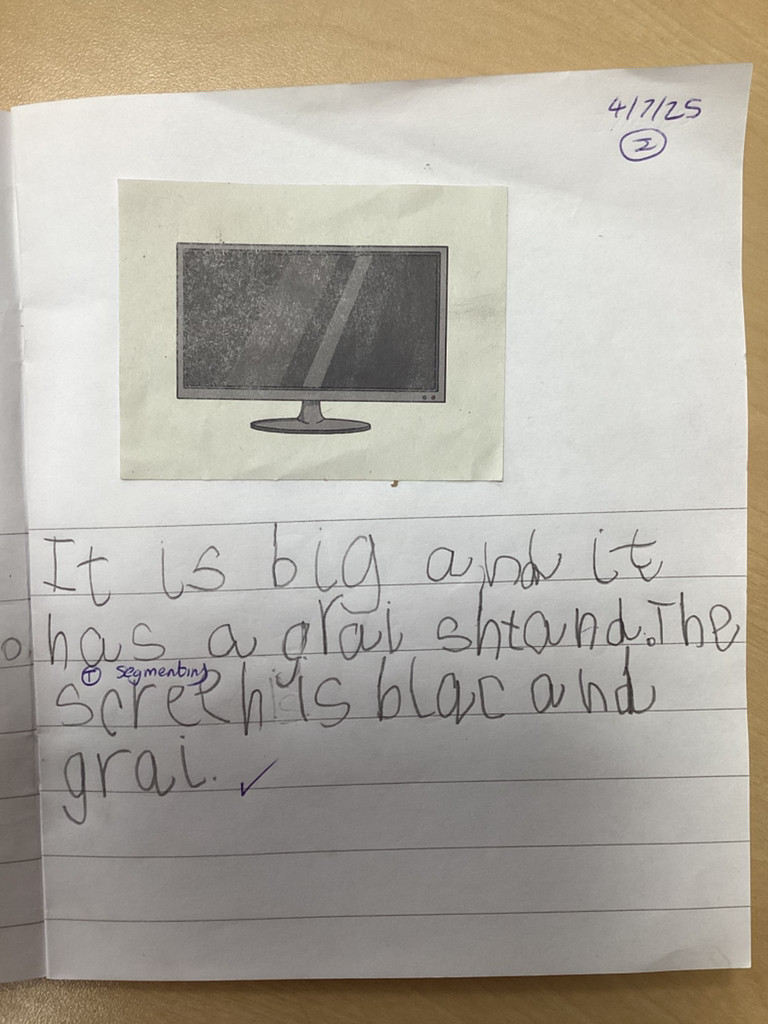 4/7/25
2
It is big and it
has a grai shtand. The
T segmenting
screen is blac and
grai.